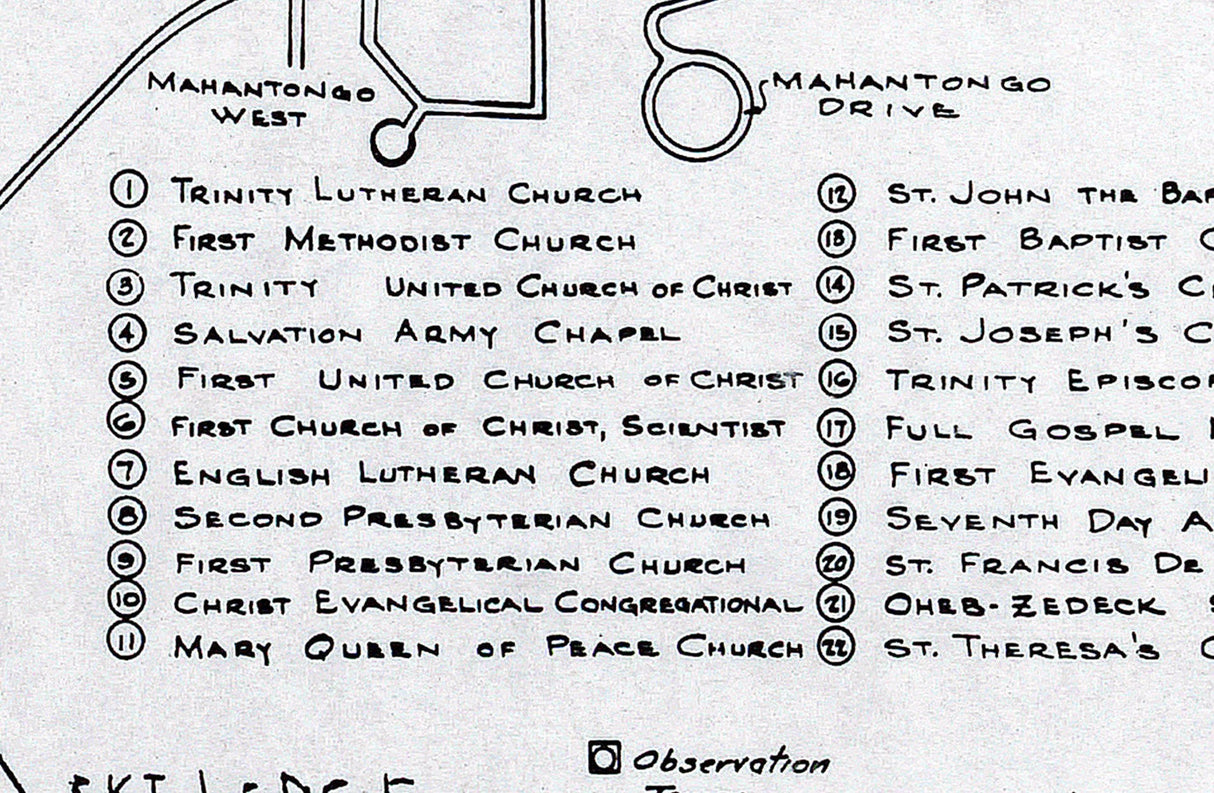 MAHANTONGO
WEST
MAHANTONGO
DRIVE
1 TRINITY LUTHERAN CHURCH
2 FIRST METHODIST CHURCH
3 TRINITY UNITED CHURCH OF CHRIST
4 SALVATION ARMY CHAPEL
5 FIRST UNITED CHURCH OF CHRIST
6 FIRST CHURCH OF CHRIST, SCIENTIST
7 ENGLISH LUTHERAN CHURCH
8 SECOND PRESBYTERIAN CHURCH
9 FIRST PRESBYTERIAN CHURCH
10 CHRIST EVANGELICAL CONGREGATIONAL
11 MARY QUEEN OF PEACE CHURCH
12 ST. JOHN THE BAP
13 FIRST BAPTIST C
14 ST. PATRICK'S C
15 ST. JOSEPH'S C
16 TRINITY EPISCOP
17 FULL GOSPEL
18 FIRST EVANGELI
19 SEVENTH DAY A
20 ST. FRANCIS DE
21 OHEB-ZEDECK S
22 ST. THERESA'S C
Observation